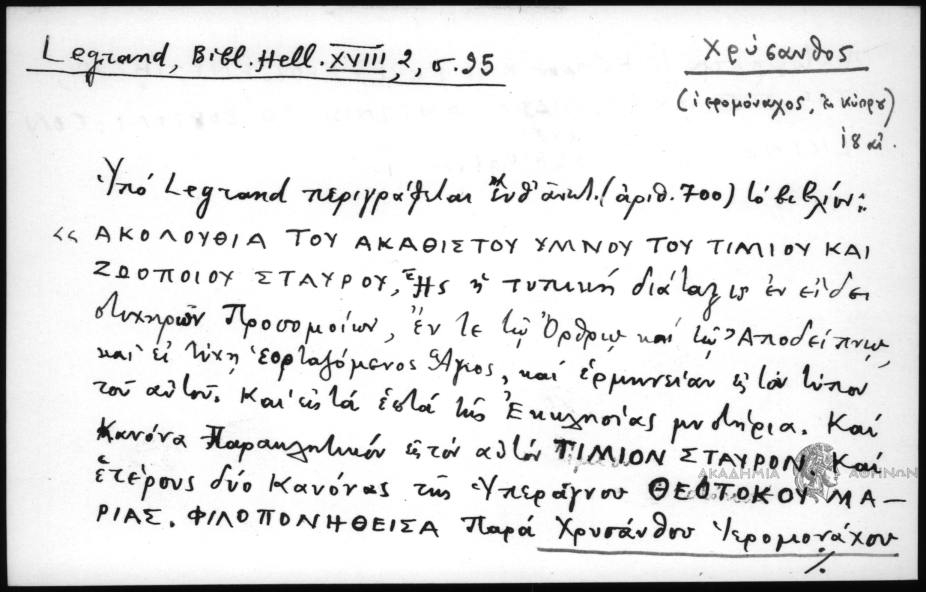 Legrand, Bibl. Hell. XVIII, 2, σ. 95
Χρύσανθος
(ἱερομόναχος, ἐκ Κύπρου)
18 αἰ.
Ὑπό Legrand περιγράφεται ἐνθ' ἀνωτ. (ἀριθ. 700) τό βιβλίον:
« ΑΚΟΛΟΥΘΙΑ ΤΟΥ ΑΚΑΘΙΣΤΟΥ ΥΜΝΟΥ ΤΟΥ ΤΙΜΙΟΥ ΚΑΙ
ΖΩΟΠΟΙΟΥ ΣΤΑΥΡΟΥ, Ἧς ἡ τυπική διάταξις ἐν εἴδει
στιχηρῶν Προσομοίων, ἔν τε τῷ Ὄρθρῳ καί τῷ Ἀποδείπνῳ,
καί εἰ τύχῃ ἑορταζόμενος Ἅγιος, καί ἑρμηνείαν εἰς τόν τύπον
τοῦ αὐτοῦ. Καί εἰς τά ἑπτά τῆς Ἐκκλησίας μυστήρια. Καί
Κανόνα Παρακλητικόν εἰς τόν αὐτόν ΤΙΜΙΟΝ ΣΤΑΥΡΟΝ. Καί
ἑτέρους δύο Κανόνας τῆς Ὑπεράγνου ΘΕΟΤΟΚΟΥ ΜΑ–
ΡΙΑΣ. ΦΙΛΟΠΟΝΗΘΕΙΣΑ παρά Χρυσάνθου Ἱερομονάχου
./.
ΑΚΑΔΗΜΙΑ ΑΘΗΝΩΝ